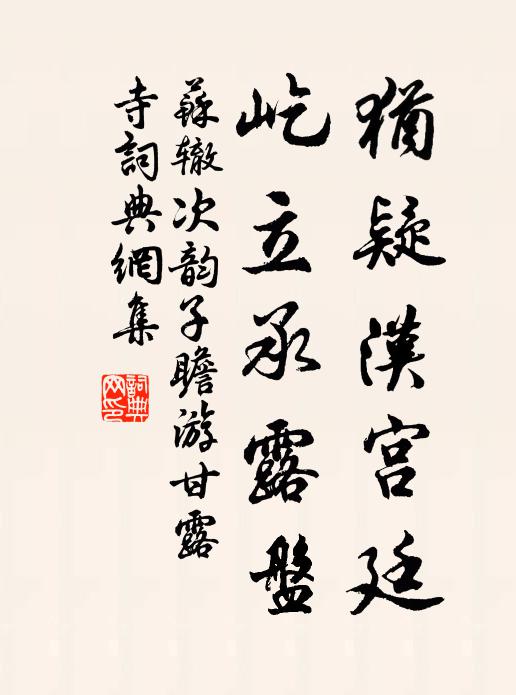 猶疑漢宮廷
屹立承露盤
蘇辙次韵子瞻游甘露
寺詞典網集
詞典
网印